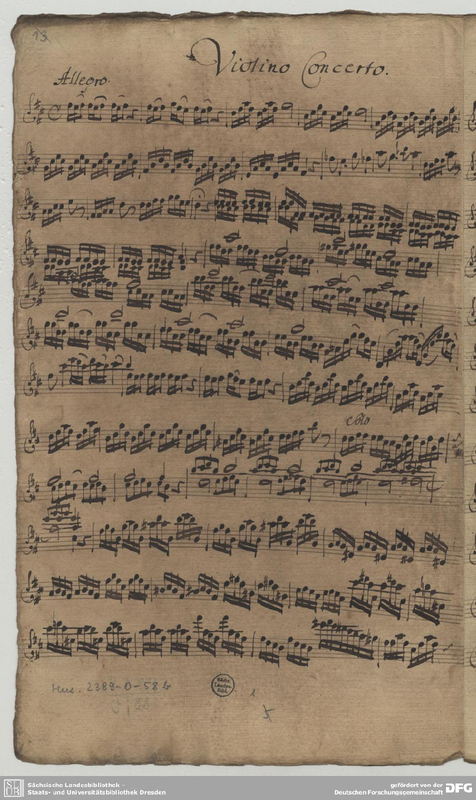 13
Violino Concerto.
Allegro.
Solo
Mus. 2389-O-58 b
Sächs.
Landes-
Bibl.
1
5
Sächsische Landesbibliothek -
Staats- und Universitätsbibliothek Dresden
gefördert von der
Deutschen Forschungsgemeinschaft
DFG